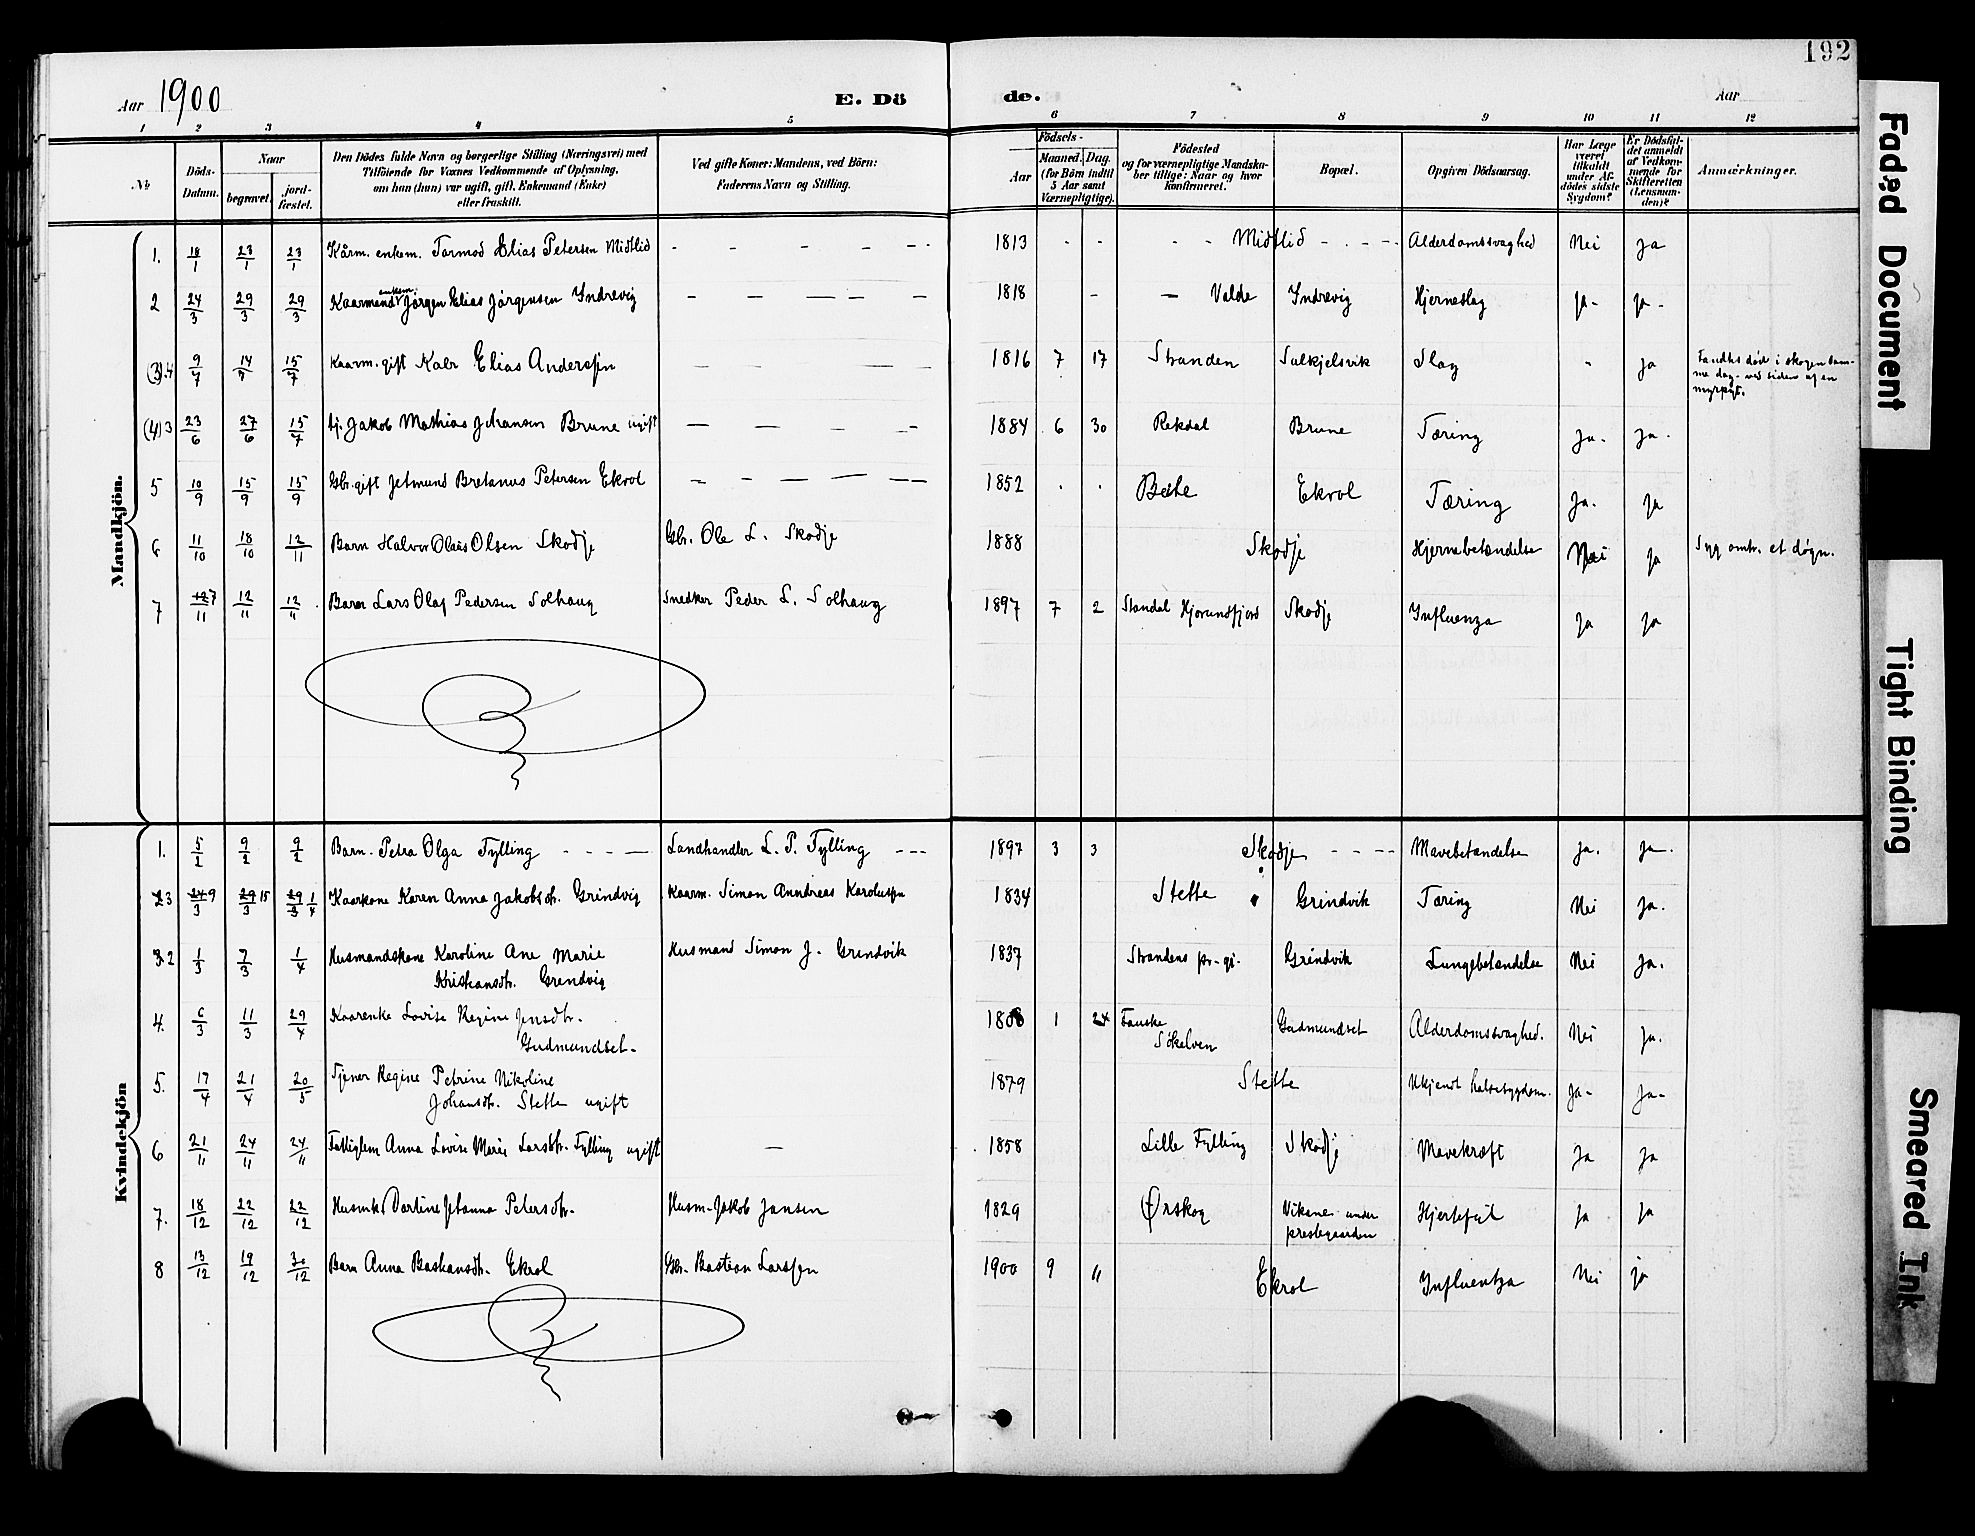 192
Aar 1900
E. Dö
de.
Aar
1 2 3 4 5 6 7 8 9 10 11 12
No
Döds-Datum.
Naar
begravet.
jord-fæstet.
Den Dödes fulde Navn og borgerlige Stilling (Næringsvei) med
Tilföiende for Voxnes Vedkommende af Oplysning,
om han (hun) var ugift, gift, Enkemand (Enke)
eller fraskilt.
Ved gifte Koner: Mandens, ved Börn:
Faderens Navn og Stilling.
Födsels-
Aar
Maaned. Dag.
(for Börn indtil
5 Aar samt
Værnepligtige).
Födested
og for værnepligtige Mandska-
ber tillige: Naar og hvor
konfirmeret.
Bopæl.
Opgiven Dödsaarsag.
Har Læge
været
tilkaldt
under Af-
dödes sidste
Sygdom?
Er Dödsfal-
det anmeldt
af Vedkom-
mende for
Skifteretten
(Lensman-
den)?
Anmærkninger.
Mandkjön.
1. 18/1 23/1 23/1 Kårm. enkem. Tormod Elias Petersen Midtlid - - - - - 1813 - - - - Midtlid - - - - Alderdomssvaghed Nei Ja
2 24/3 29/3 29/3 Kaarmand enkem. Jörgen Elias Jörgensen Indrevig - - - - - 1818 - - Valde Indrevig Hjerneslag Ja- Ja-
(3).4 9/7 14/7 15/7 Kaarm. gift Elias Anderssen - - - - 1816 7 17 Stranden Solkjelsvik Slag - Ja Fandtes död i skogen sam-
me dag - ved siden af en
(4)3 23/6 27/6 15/7 tj. Jakob Mathias Johansen Brune ugift - - - - 1884 6 30 Rekdal Brune Tæring Ja. Ja.
5 10/9 15/9 15/9 Gbr. gift Jetmund Bretanus Petersen Ekrol - - - - - 1852 . . Ekrol Tæring Ja. Ja
6 11/10 18/10 12/11 Barn Halvor Olaus Olsen Skodje Gbr. Ole L. Skodje 1888 Skodje Hjernebetændelse Nei Ja Syg omtr. et døgn.
7 7/11 12/11 12/11 Barn Lars Olaf Pedersen Solhaug Snedker Peder L. Solhaug 1897 7 2 Standal Hjorundfjord Skodje Influenza Ja Ja
Kvindekjön
1. 5/2 9/2 9/2 Barn. Petra Olga Tylling - - - - Landhandler L. P. Tylling - - - 1897 3 3 Skodje - - - - Mavebetændelse Ja. Ja-.
23 24 9/3 29 15/3 29/3 1/4 Kaarkone Karen Anna Jakobsdtr. Grindvig Kaarm. Simon Anndreas Karolussen 1834 Stette Grindvik Tæring Nei Ja.
3.2 1/3 7/3 1/4 Husmandskone Karoline Ane Marie
Kristiansdtr. Grendvig Husmand Simon J. Grendvik 1837 Strandens pr.-gj. Grindvik Lungebetændelse Nei Ja.
4. 6/3 11/3 29/4 Kaarenke Lovise Regine Jensdtr.
Gudmundset- 1808 1 24 Fauske
Sökelven Gudmundset Alderdomssvaghed. Nei Ja.
5. 17/4 21/4 20/5 Tjener Regine Petrine Nikoline
Johansdtr. Stette ugift 1879 Stette Ukjendt halssygdom. Ja- Ja-
6 21/11 24/11 24/11 Fattiglem Anna Lovise Marie Larsdtr. Tylling ugift - 1858 Lille Tylling Skodje Mavekræft Ja Ja
7. 18/12 22/12 22/12 Husmk. Dortine Johanna Petersdtr. Husm. Jakob Jansen 1829 Ørskog Viksnes under
prestegaarden Hjertefeil Ja Ja
8 13/12 19/12 30/12 Barn Anna Bastiansdtr. Ekrol Gbr. Bastian Larssen 1900 9 " Ekrol Influentza Nei ja
Faded Document
Tight Binding
Smeared Ink